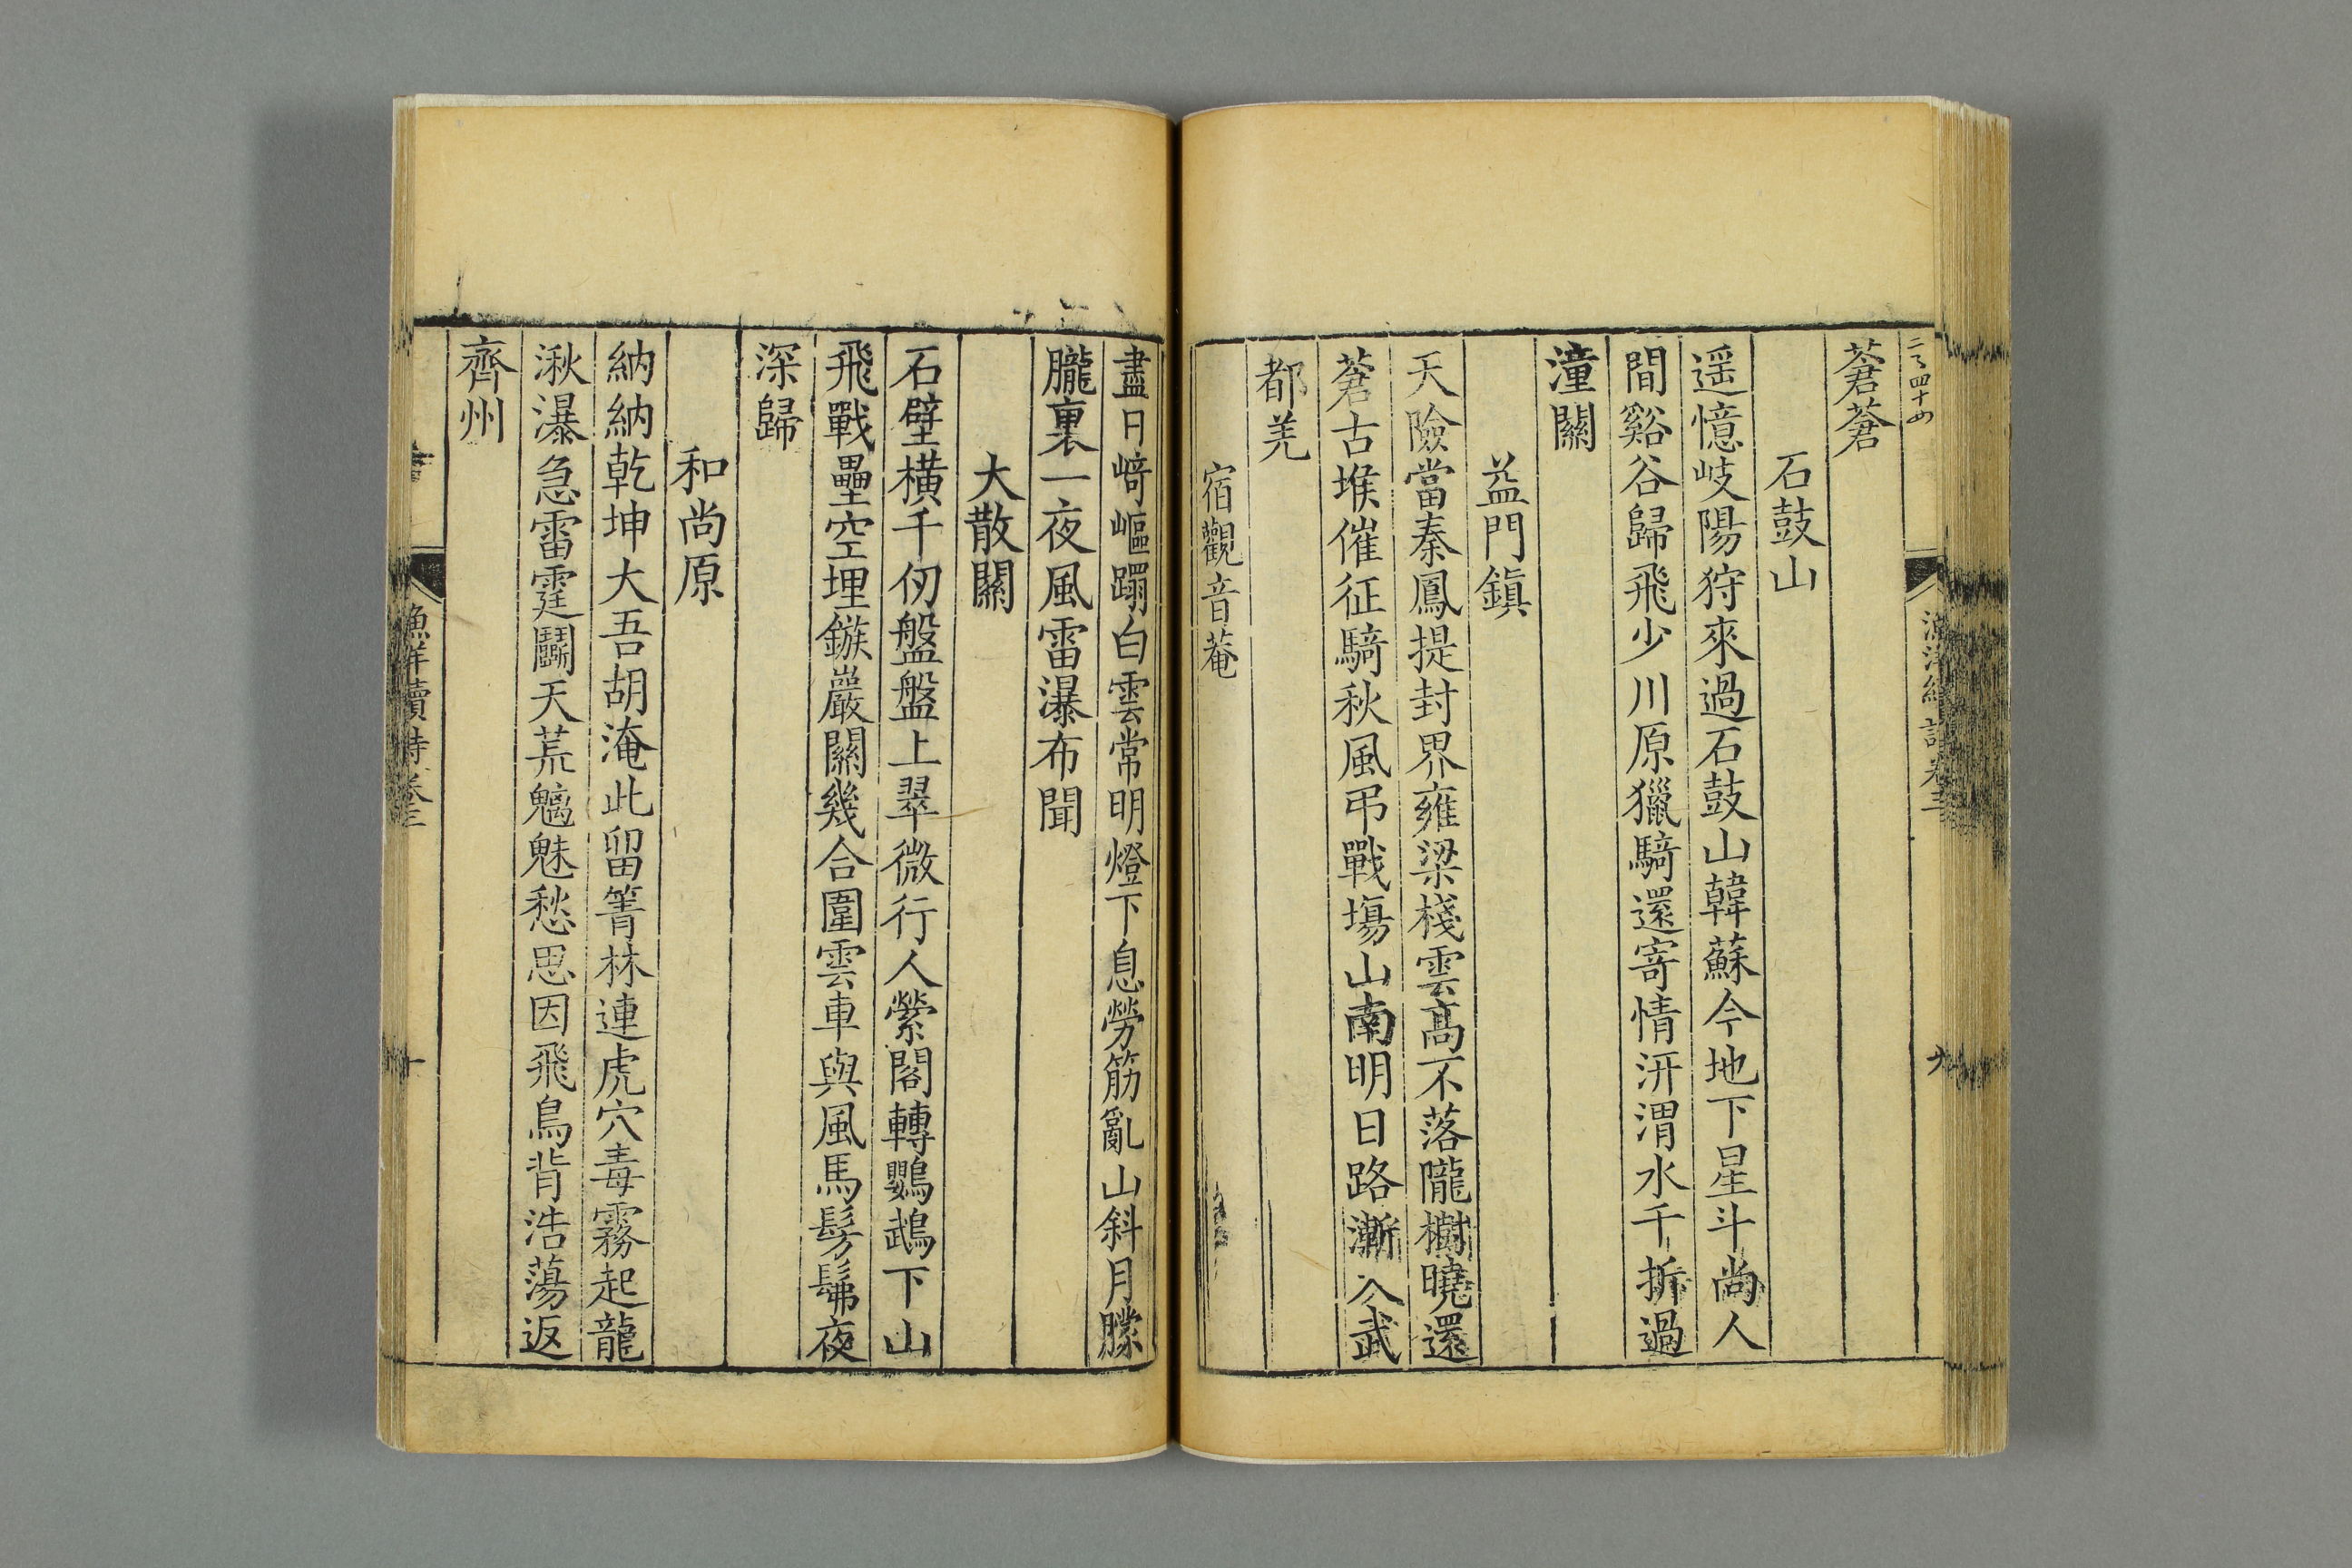 蒼蒼
石鼓山
遥憶岐陽狩來過石鼓山韓蘇今地下星斗尚人
間谿谷歸飛少川原獵騎還寄情汧渭水千折過
潼關
益門鎮
天險當秦鳳提封界雍梁棧雲高不落隴樹曉還
蒼古堠催征騎秋風弔戰塲山南明日路漸入武
都羌
宿觀音菴
盡日﨑嶇蹋白雲常明燈下息勞筋亂山斜月朦
朧裏一夜風雷瀑布聞
大散關
石壁橫千仞盤盤上翠微行人縈閣轉鸚鵡下山
飛戰壘空埋鏃巖關幾合圍雲車與風馬髣髴夜
深歸
和尚原
納納乾坤大吾胡淹此留箐林連虎穴毒霧起龍
湫瀑急雷霆鬭天荒魑魅愁思因飛鳥背浩蕩返
齊州
漁洋續詩卷三
十